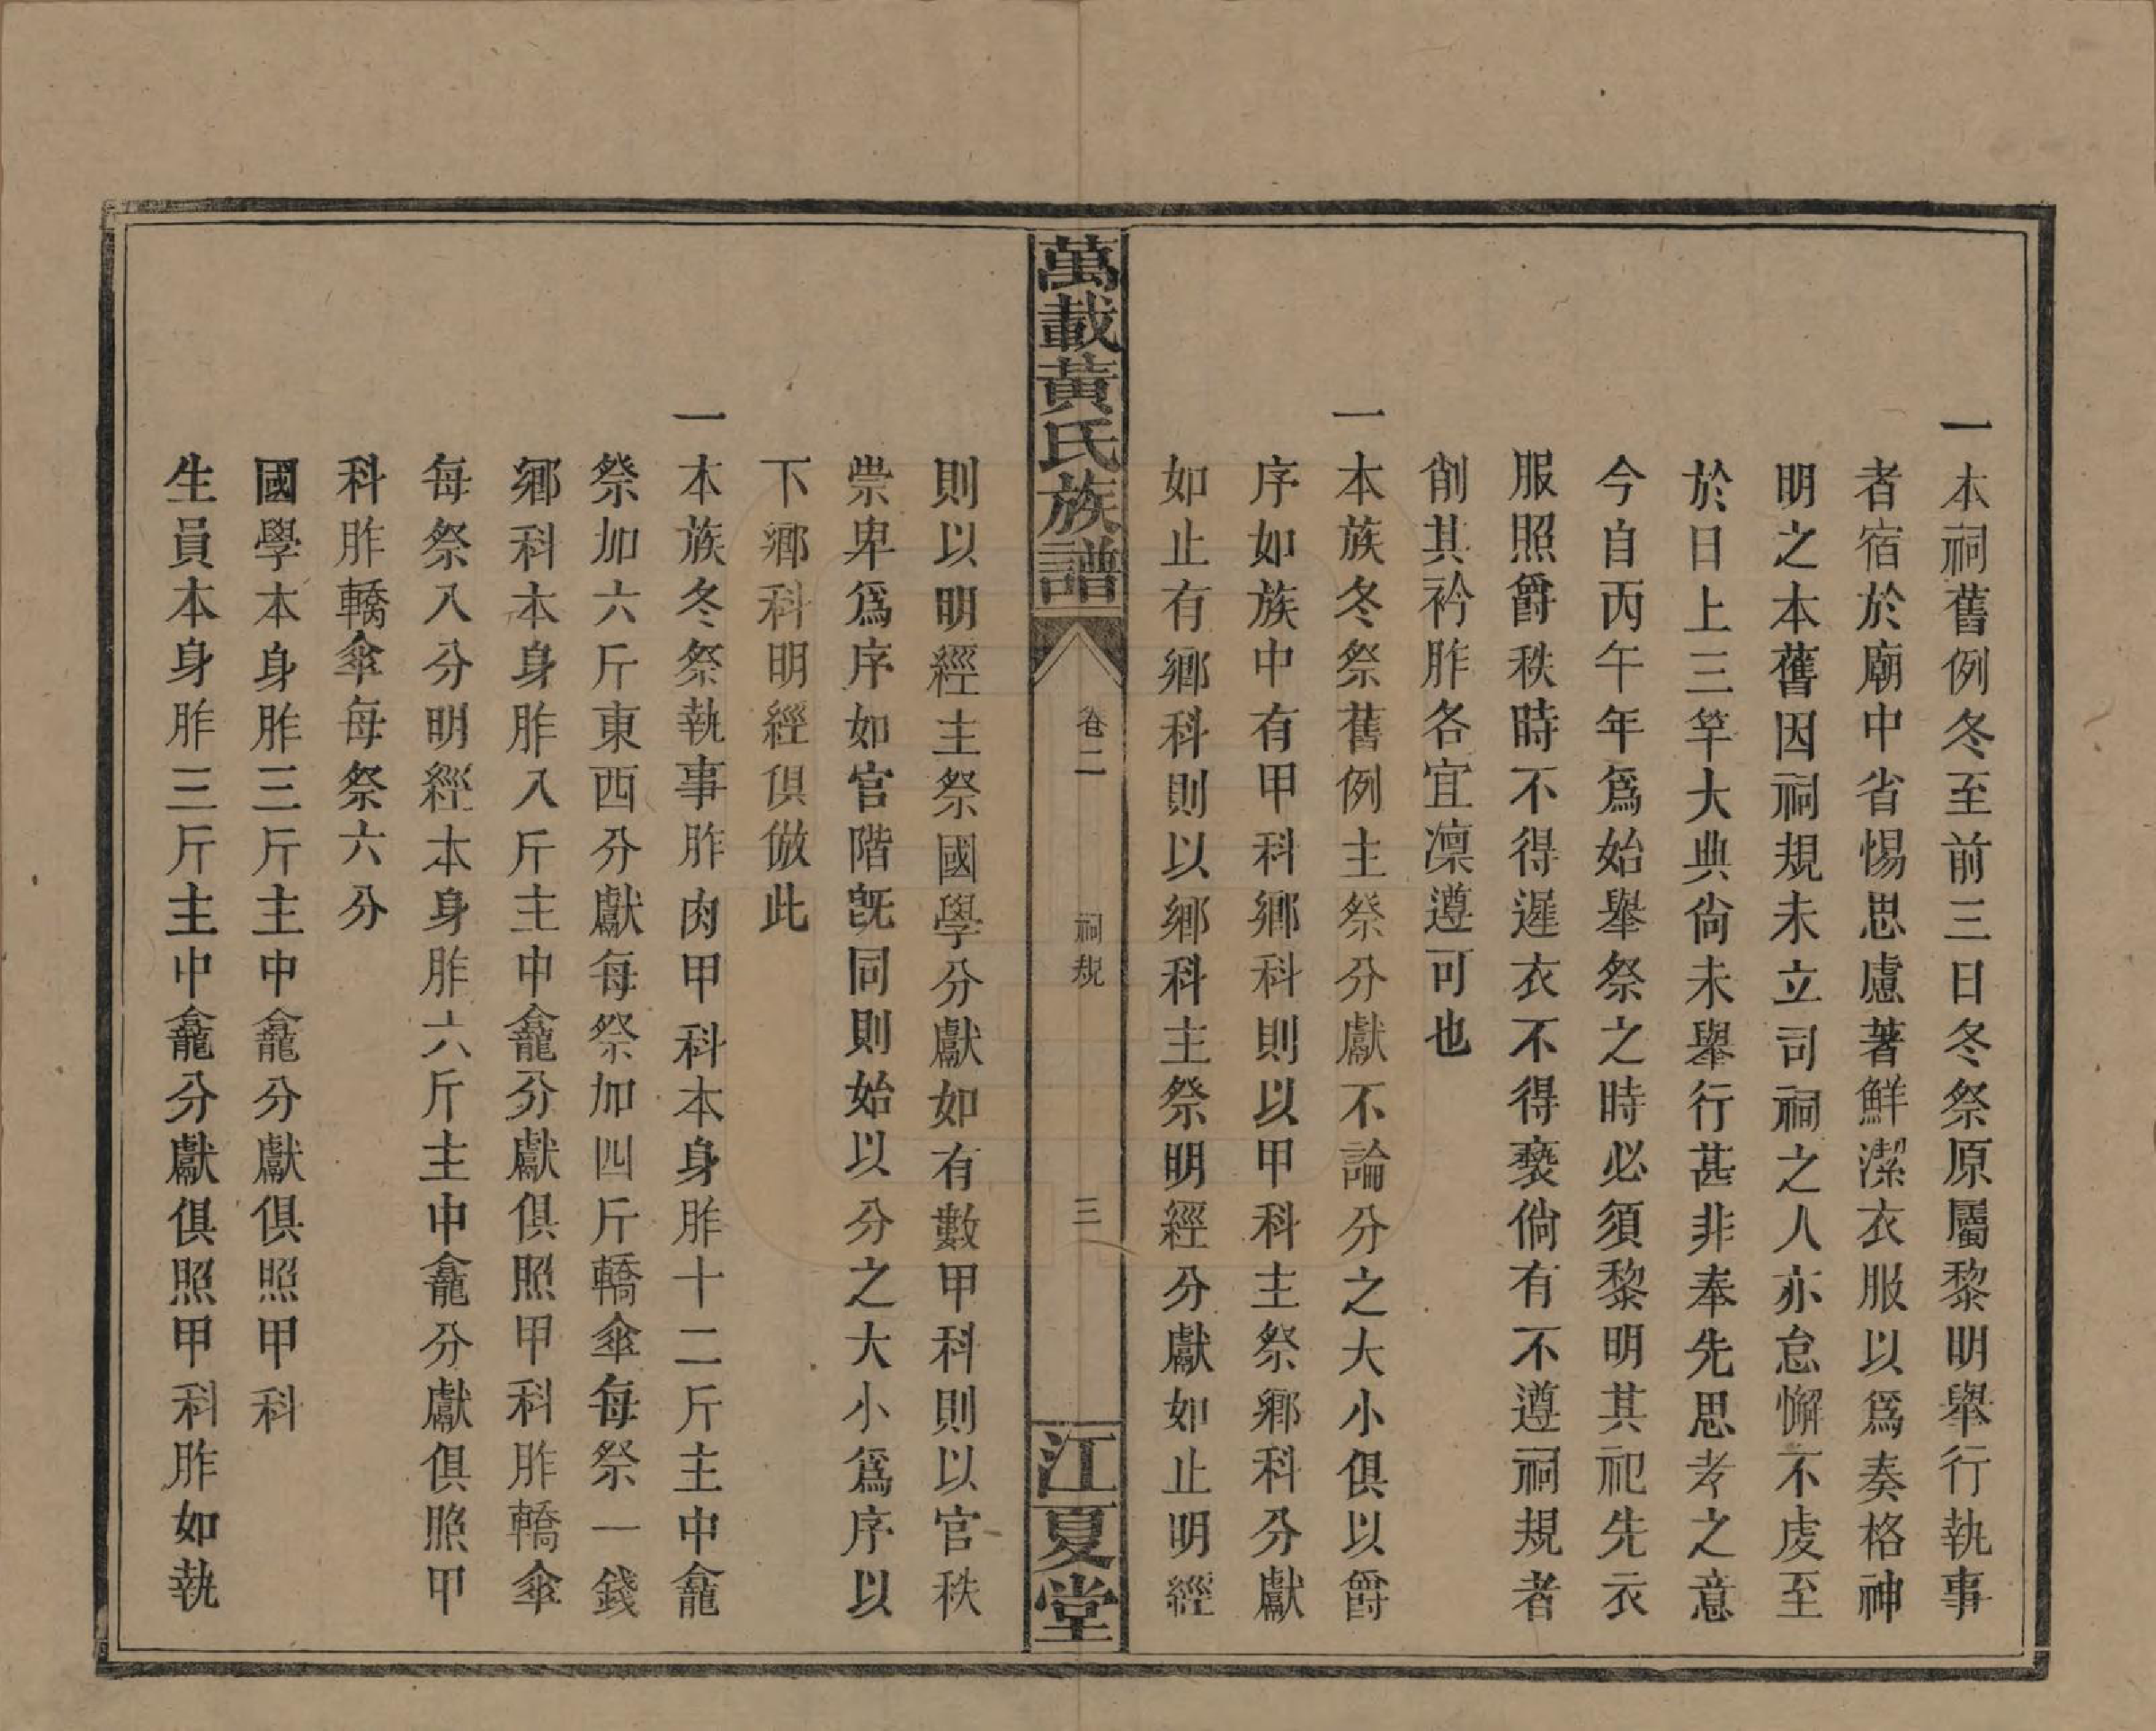 一本祠舊例冬至前三日冬祭原屬黎明舉行執事
者宿於廟中省惕思慮著鮮潔衣服以爲奏格神
明之本舊因祠規未立司祠之人亦怠懈不虔至
於日上三竿大典尙未舉行甚非奉先思孝之意
今自丙午年爲始舉祭之時必須黎明其祀先衣
服照爵秩時不得遲衣不得褻倘有不遵祠規者
削其衿胙各宜凛遵可也
一本族冬祭舊例主祭分獻不論分之大小俱以爵
序如族中有甲科鄉科則以甲科主祭鄉科分獻
如止有鄉科則以鄉科主祭明經分獻如止明經
萬載黃氏族譜
卷二
祠規
三
江夏堂
則以明經主祭國學分獻如有數甲科則以官秩
崇卑爲序如官階旣同則始以分之大小爲序以
下鄉科明經俱倣此
一本族冬祭執事胙肉甲科本身胙十二斤主中龕
祭加六斤東西分獻每祭加四斤轎傘每祭一錢
鄉科本身胙八斤主中龕分獻俱照甲科胙轎傘
每祭八分明經本身胙六斤主中龕分獻俱照甲
科胙轎傘每祭六分
國學本身胙三斤主中龕分獻俱照甲科
生員本身胙三斤主中龕分獻俱照甲科胙如執